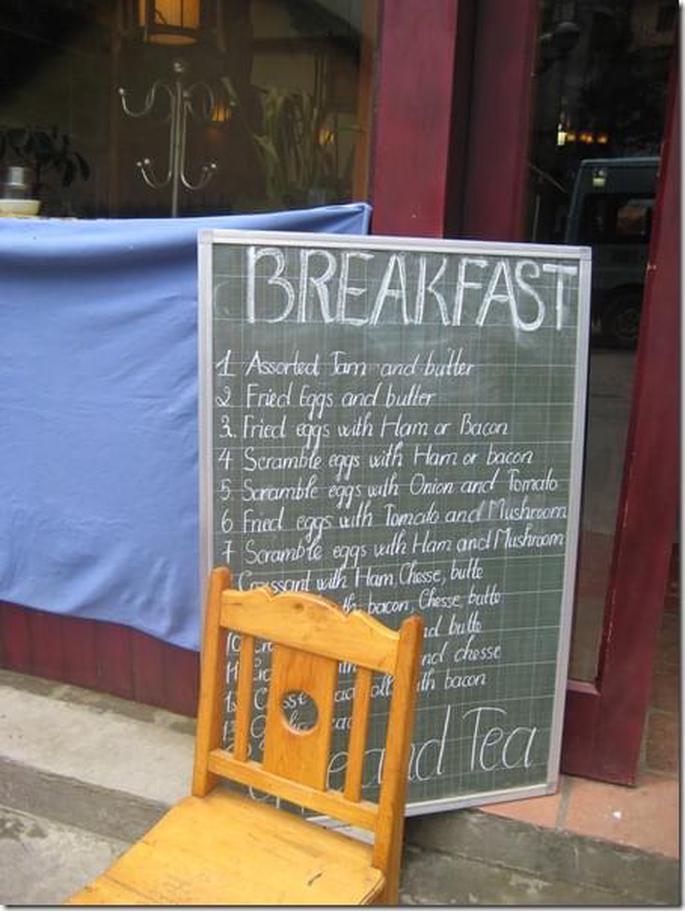 BREAKFAST
1 Assorted Jam and butter
2. Fried Eggs and butter
3. Fried eggs with Ham or Bacon
4 Scramble eggs with Ham or bacon
5 Scramble eggs with Onion and Tomato
6 Fried eggs with Tomato and Mushroom
7 Scramble eggs with Ham and Mushroom
Croissant with Ham, Chesse, butte
bacon, Chesse, butte
10 and butte
11 and chesse
12 with bacon
13
and Tea